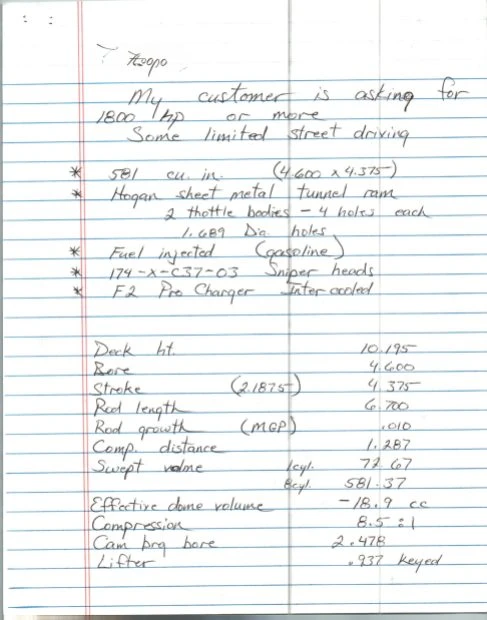 My customer is asking for
1800 hp or more
Some limited street driving
* 581 cu. in. (4.600 x 4.375)
* Hogan sheet metal tunnel ram
2 thottle bodies - 4 holes each
1.689 Dia. holes
* Fuel injected (gasoline)
* 174-X-C37-03 Sniper heads
* F2 Pro Charger Inter cooled
Deck ht. 10.195
Bore 4.600
Stroke (2.1875) 4.375
Rod length 6.700
Rod growth (MGP) .010
Comp. distance 1.287
Swept volme 1cyl. 72.67
8cyl. 581.37
Effective dome volume -18.9 cc
Compression 8.5 : 1
Cam brg bore 2.478
Lifter .937 keyed